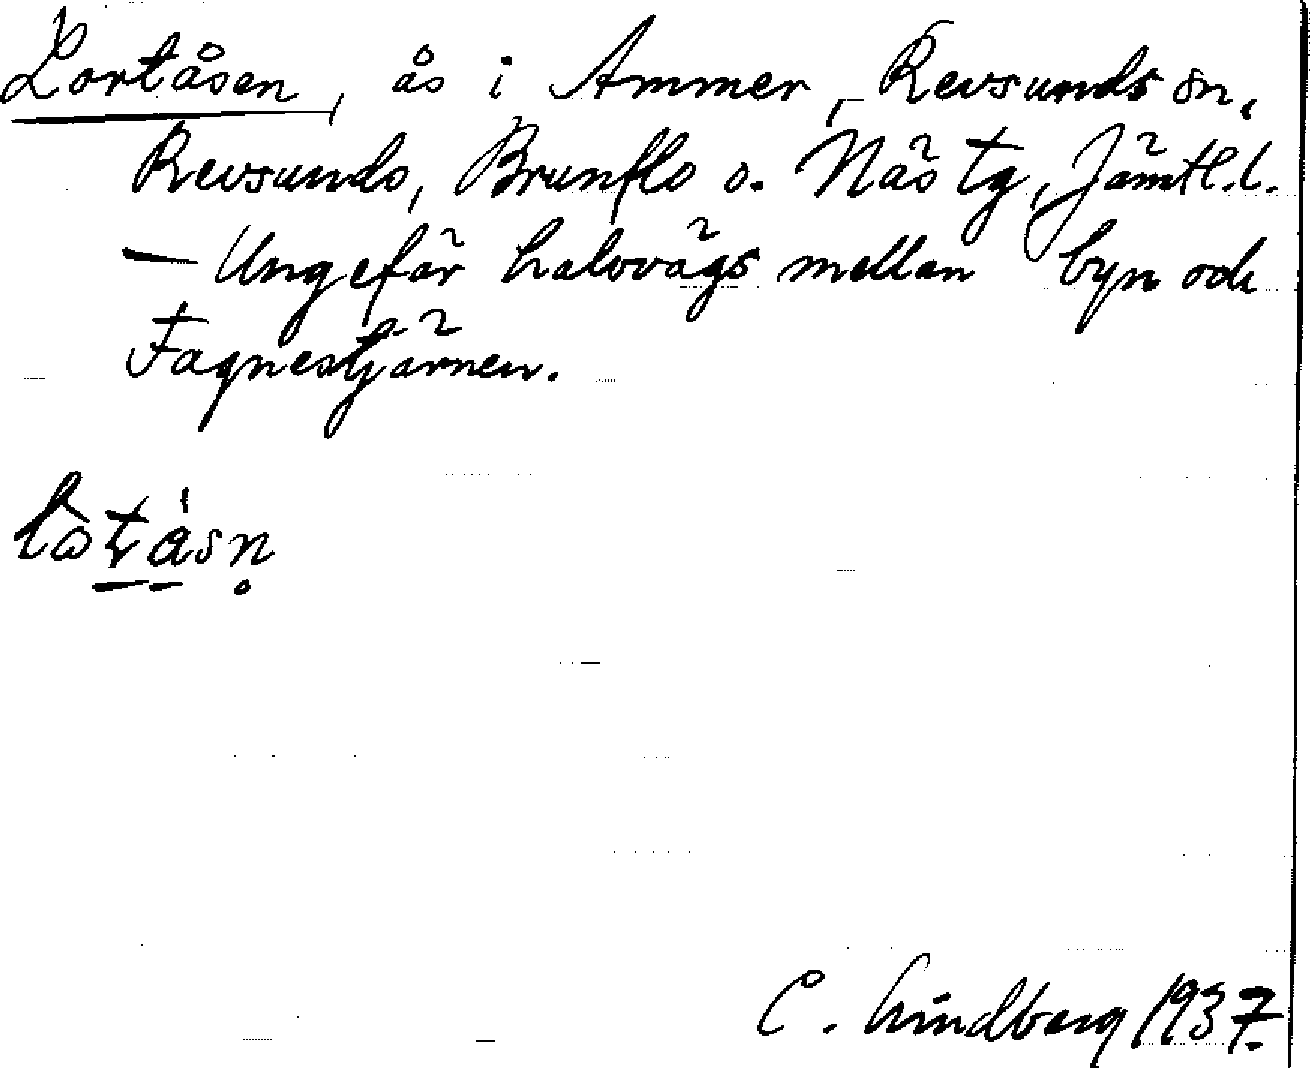 Lortåsen, ås i Ammer, Revsunds sn,
Revsunds, Brunflo o. Näs tg, Jämtl.l.
— Ungefär halvvägs mellan byn och
Fagnestjärnen.
C. Lindberg 1937.